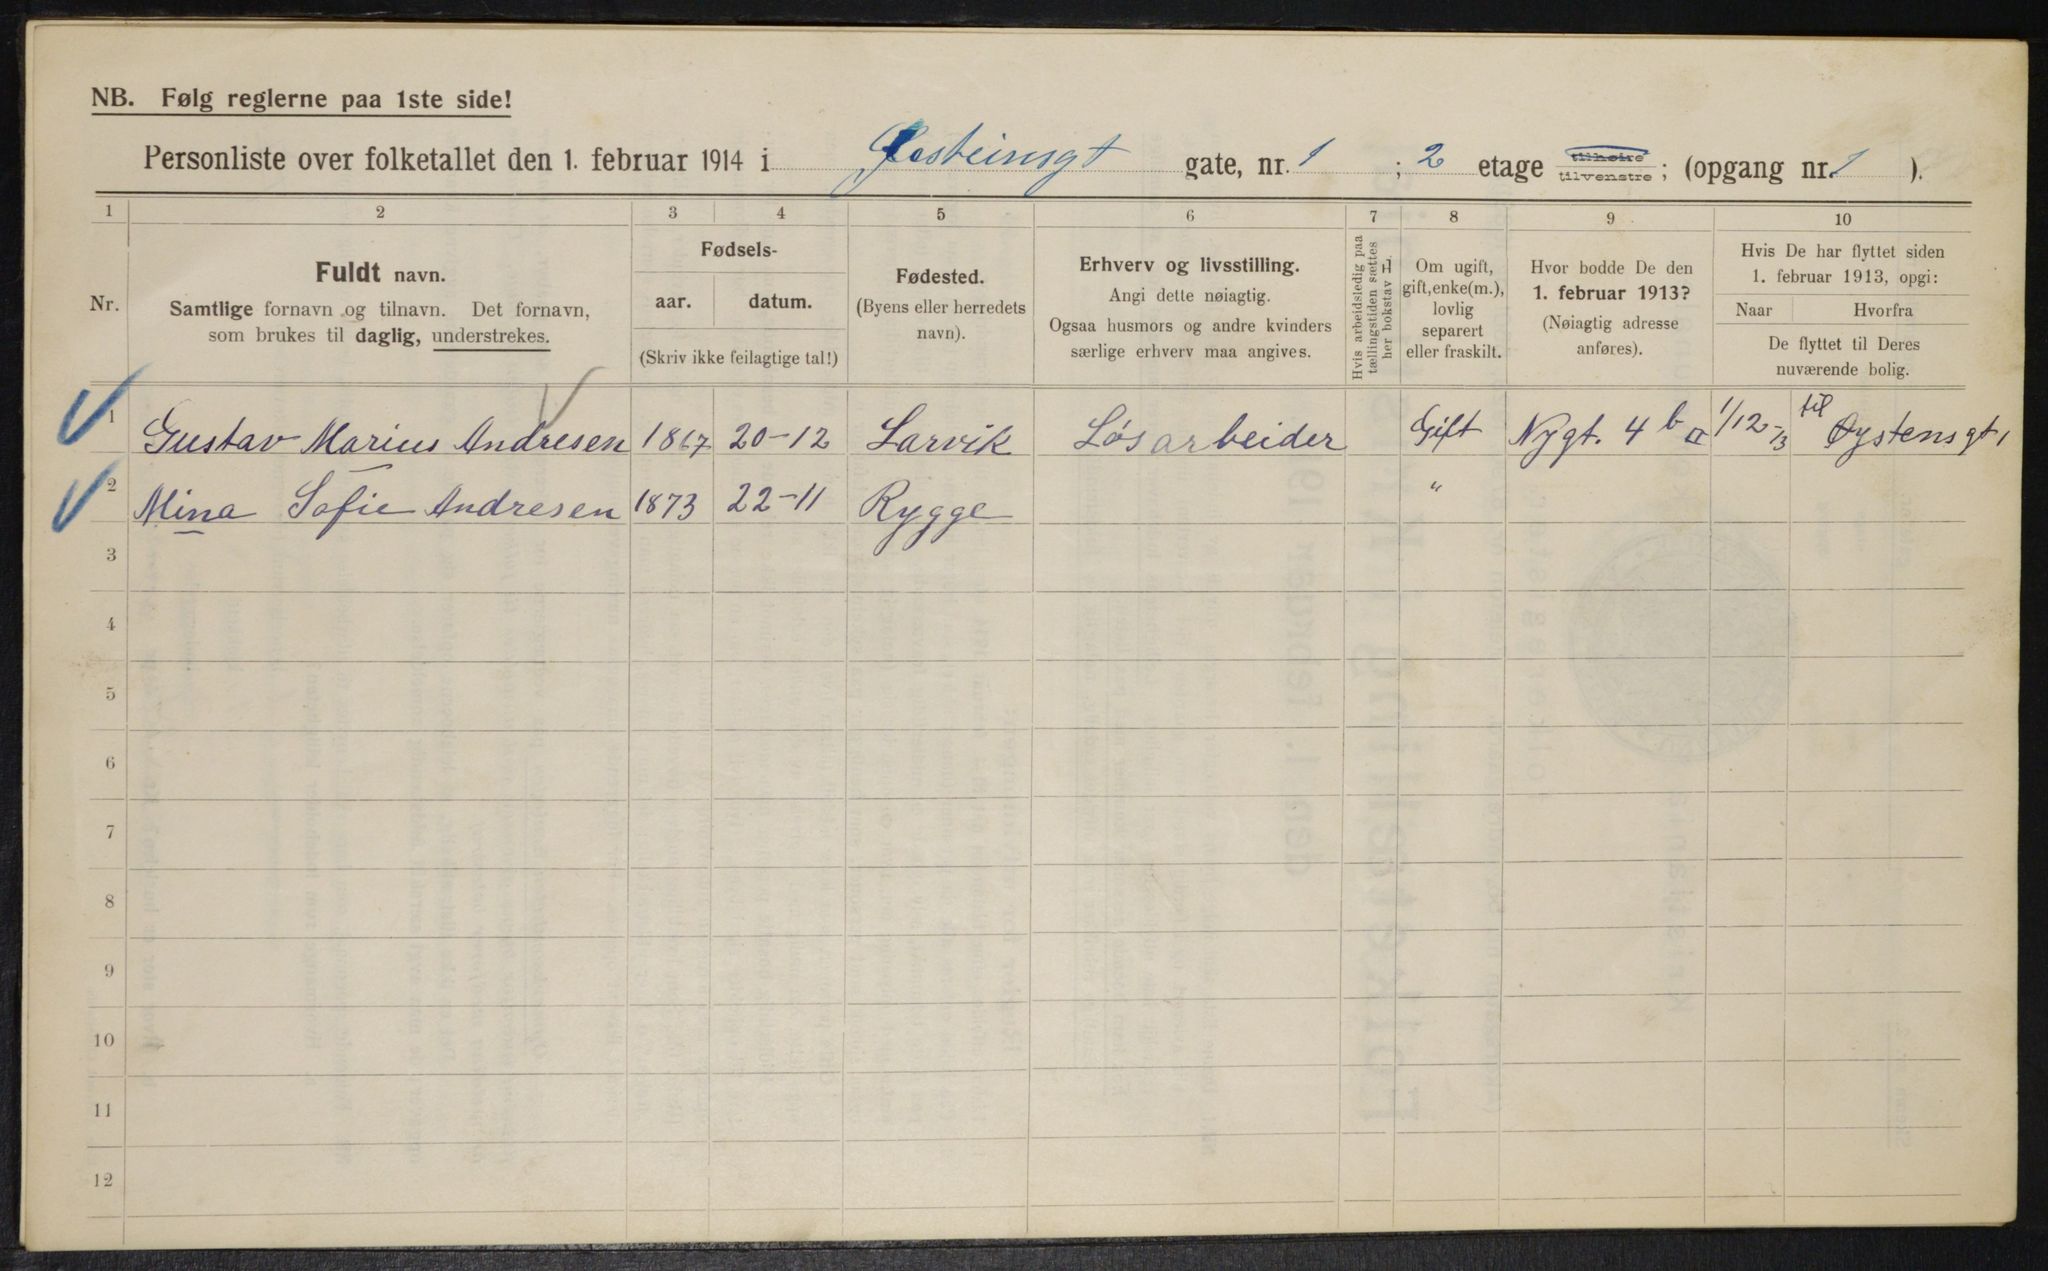 NB. Følg reglerne paa 1ste side!
Personliste over folketallet den 1. februar 1914 i Østeinsgt gate, nr. 1 ; 2 etage tilhøire tilvenstre ; (opgang nr. 1 ).
1 2 3 4 5 6 7 8 9 10
Nr.
Fuldt navn.
Samtlige fornavn og tilnavn. Det fornavn,
som brukes til daglig, understrekes.
Fødsels-
aar. datum.
(Skriv ikke feilagtige tal!)
Fødested.
(Byens eller herredets
navn).
Erhverv og livsstilling.
Angi dette nøiagtig.
Ogsaa husmors og andre kvinders
særlige erhverv maa angives.
Hvis arbeidsledig paa
tællingstiden sættes
her bokstav L
Om ugift,
gift, enke(m.),
lovlig
separert
eller fraskilt.
Hvor bodde De den
1. februar 1913?
(Nøiagtig adresse
anføres).
Hvis De har flyttet siden
1. februar 1913, opgi:
Naar Hvorfra
De flyttet til Deres
nuværende bolig.
1 Gustav Marius Andresen 1867 20-12 Larvik Løsarbeider Gift Nygt. 4 b 1/12-13 til Øystensgt 1
2 Mina Sofie Andresen 1873 22-11 Rygge "
3
4
5
6
7
8
9
10
11
12